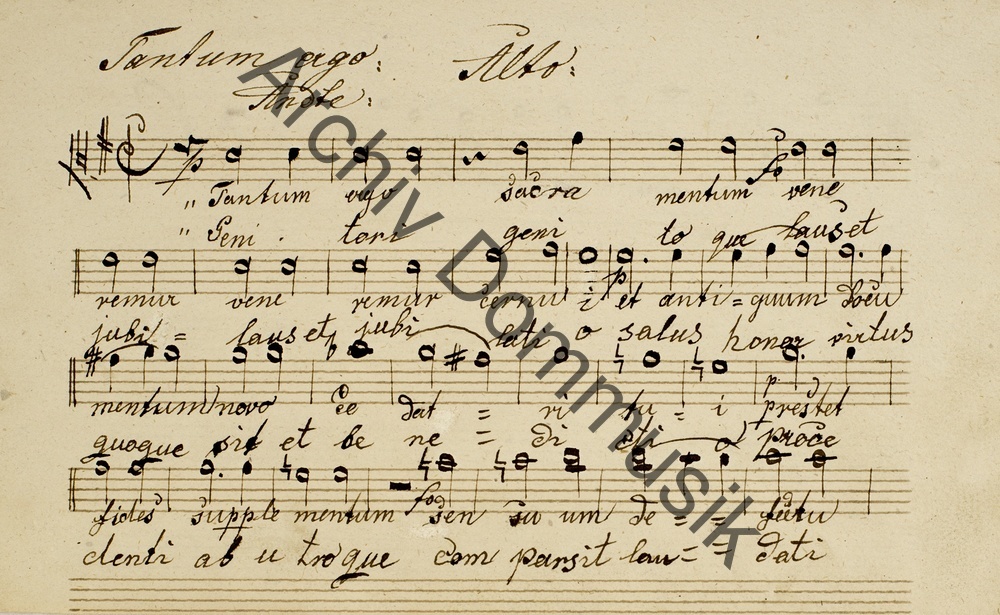 Tantum ergo: Alto:
Andte:
p fo
„ Tantum ergo sacra mentum vene
„ Geni . tori geni to que laus et
p
remur vene remur cernu i et anti = quum docu
jubi = laus et jubi lati o salus honor virtus
p
mentum novo ce dat = ri tu = i prestet
quoque sit et be ne = di cti o proce
fo
fides supple mentum sen su um de = = fectu
denti ab u troque com parsit lau = = dati
Archiv Dommusik